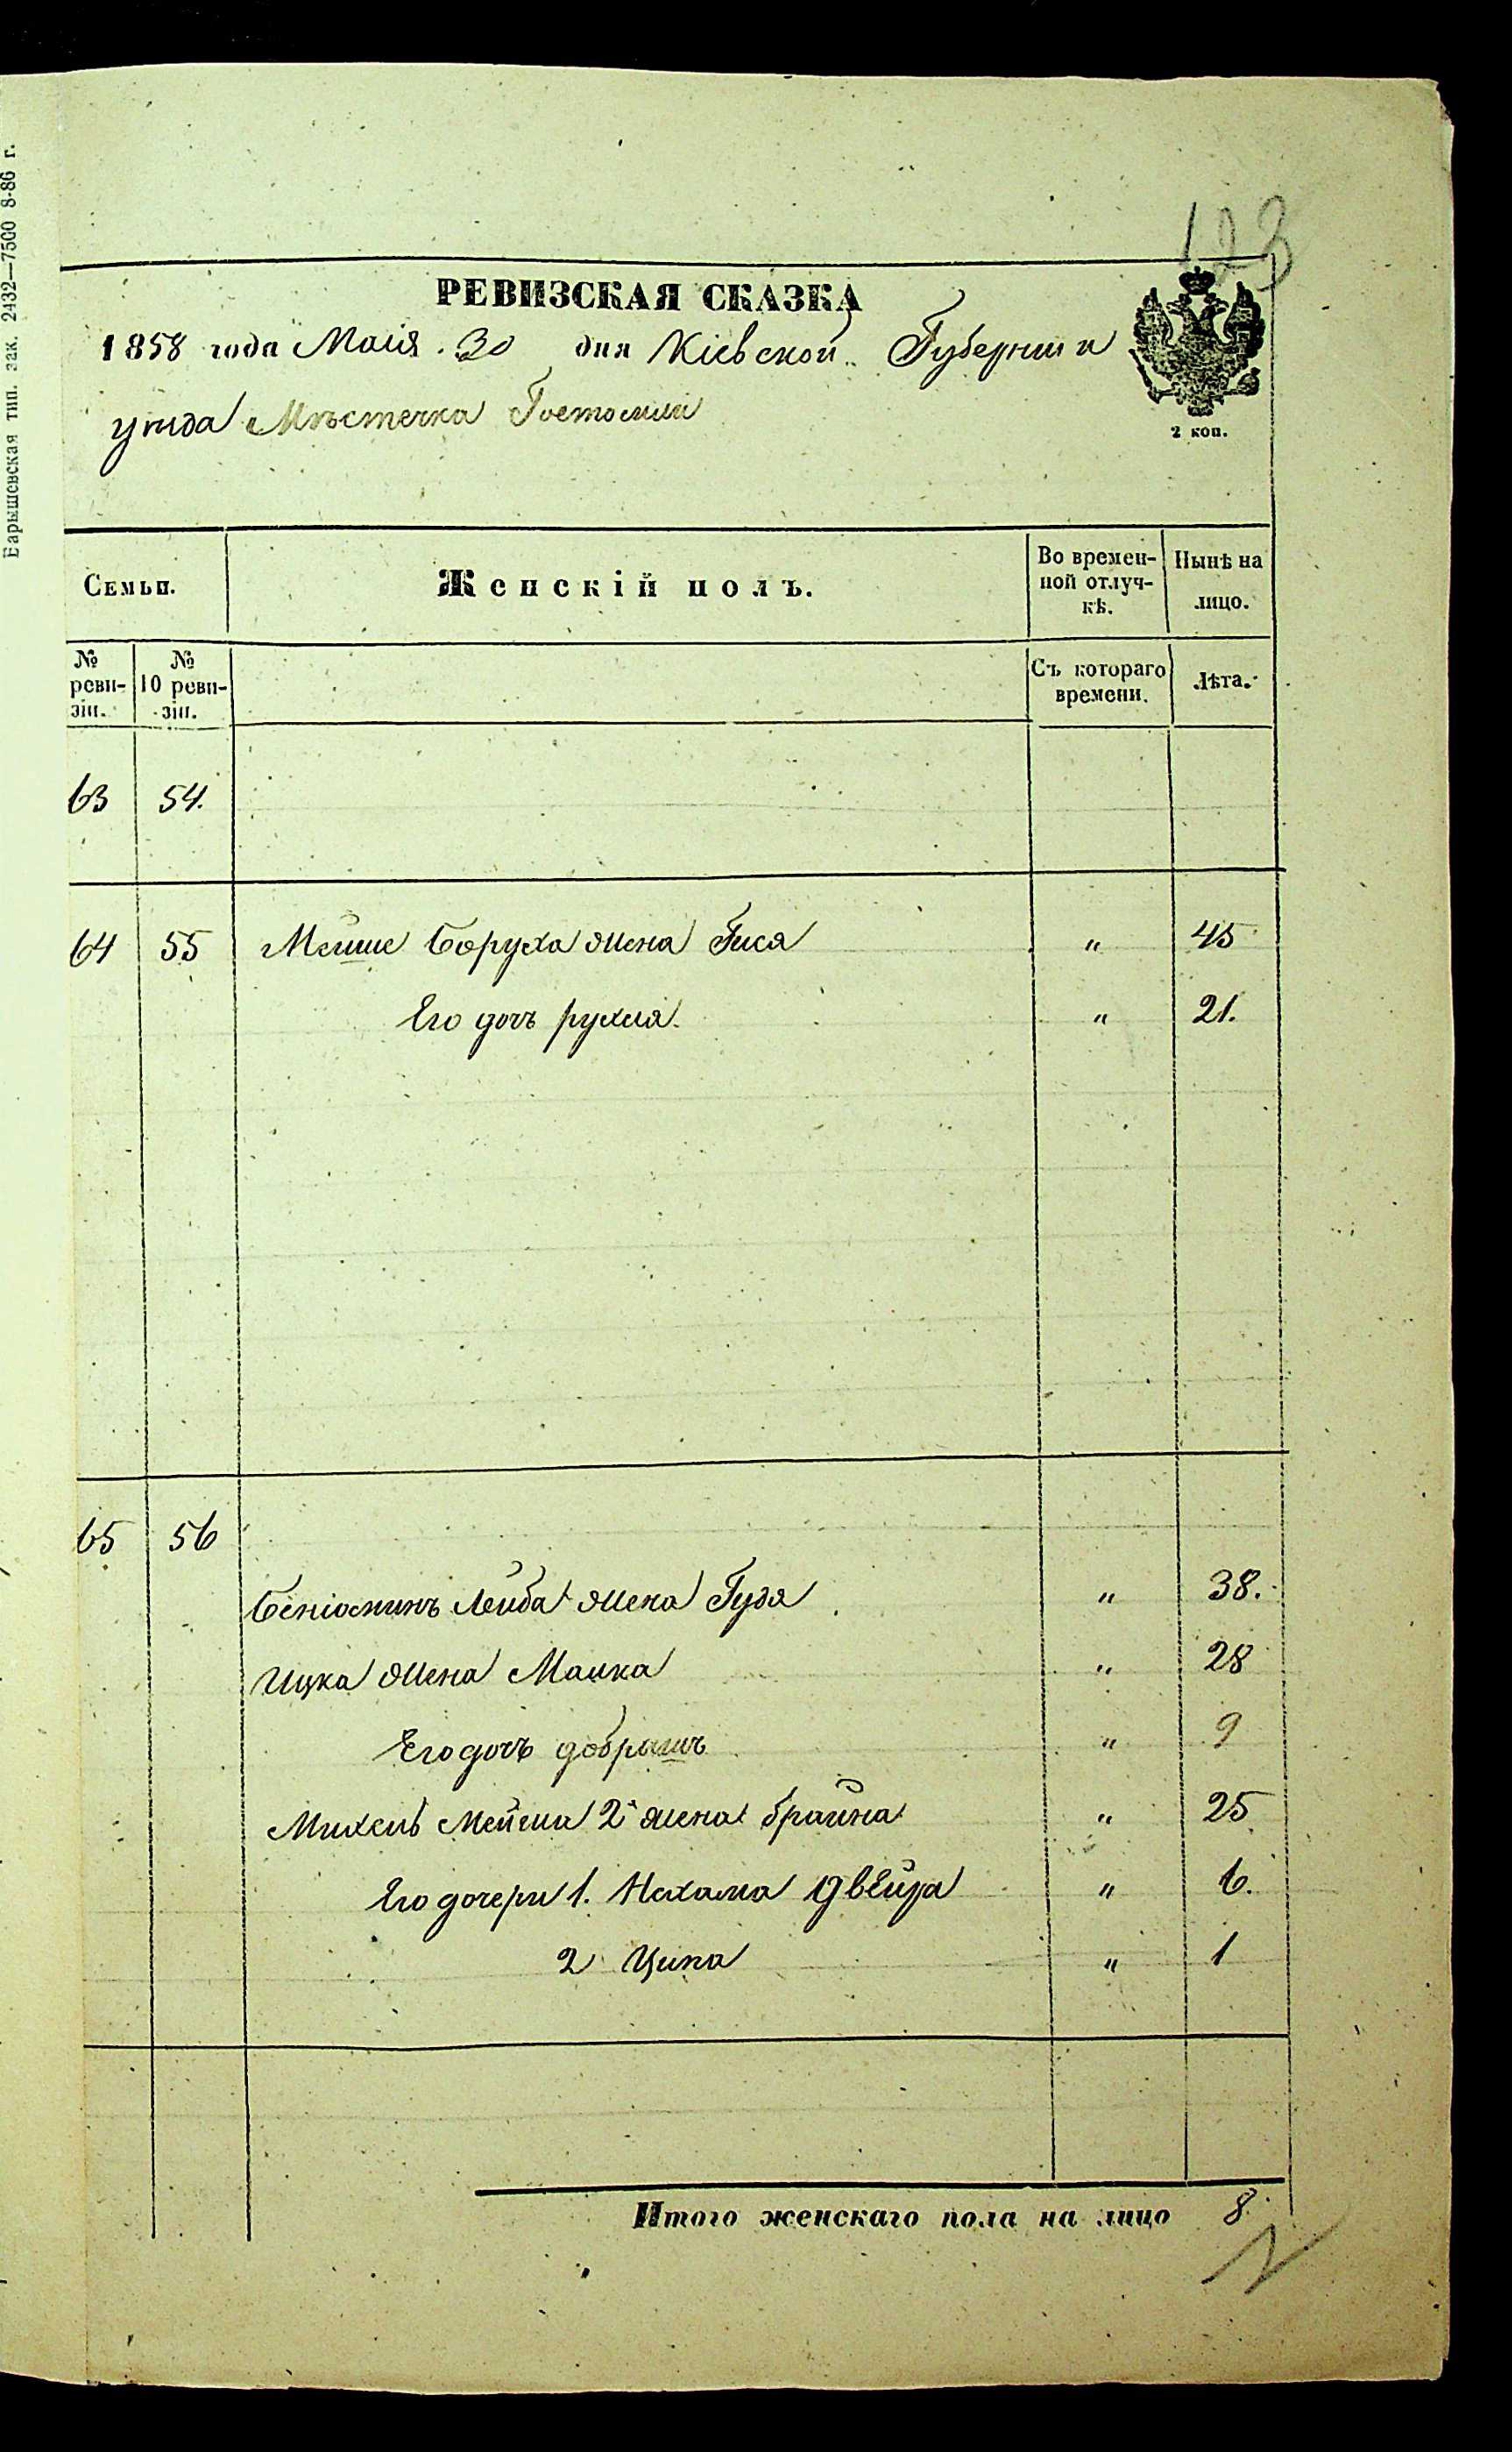 Барышевская тип. зак. 2432—7500 8-86 г.
123
РЕВИЗСКАЯ СКАЗКА
1858 года Маія 30 дня Кіевской Губерніи и
уѣзда Мѣстечка Гостомли
2 коп.
Семьи. Женскій полъ. Во времен-ной отлуч-кѣ. Нынѣ на лицо.
№ реви-зіи. № 10 реви-зіи. Съ котораго времени. Лѣта.
63 54.
64 55 Мейше Боруха жена Гися " 45
Его дочь рухля. " 21.
65 56
Беніоминъ Лейба жена Гудя " 38.
Ицка жена Малка " 28
Его дочь добрышъ " 9
Михель Мейша 2 жена брайна " 25
Его дочери 1. Нехама двейра " 6.
2 Ципа " 1
Итого женскаго пола на лицо 8.